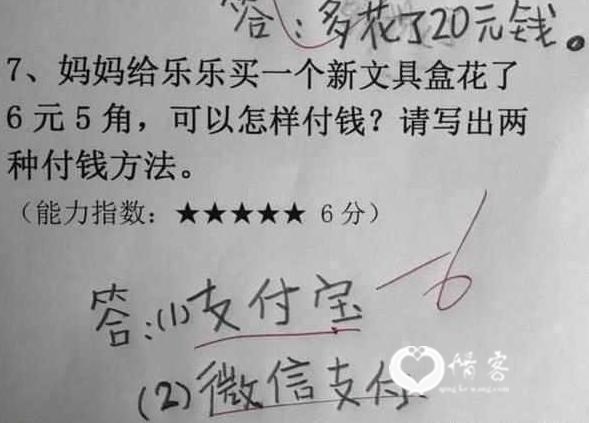 答：多花了20元钱。
7、妈妈给乐乐买一个新文具盒花了
6元5角，可以怎样付钱？请写出两
种付钱方法。
（能力指数：★★★★★ 6分）
-6
答：(1)支付宝
(2)微信支付
情客
qingkewang.com